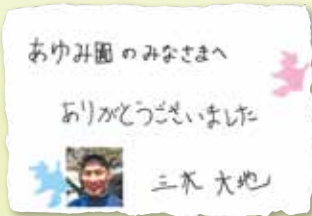 あゆみ園のみなさまへ
ありがとうございました
大地